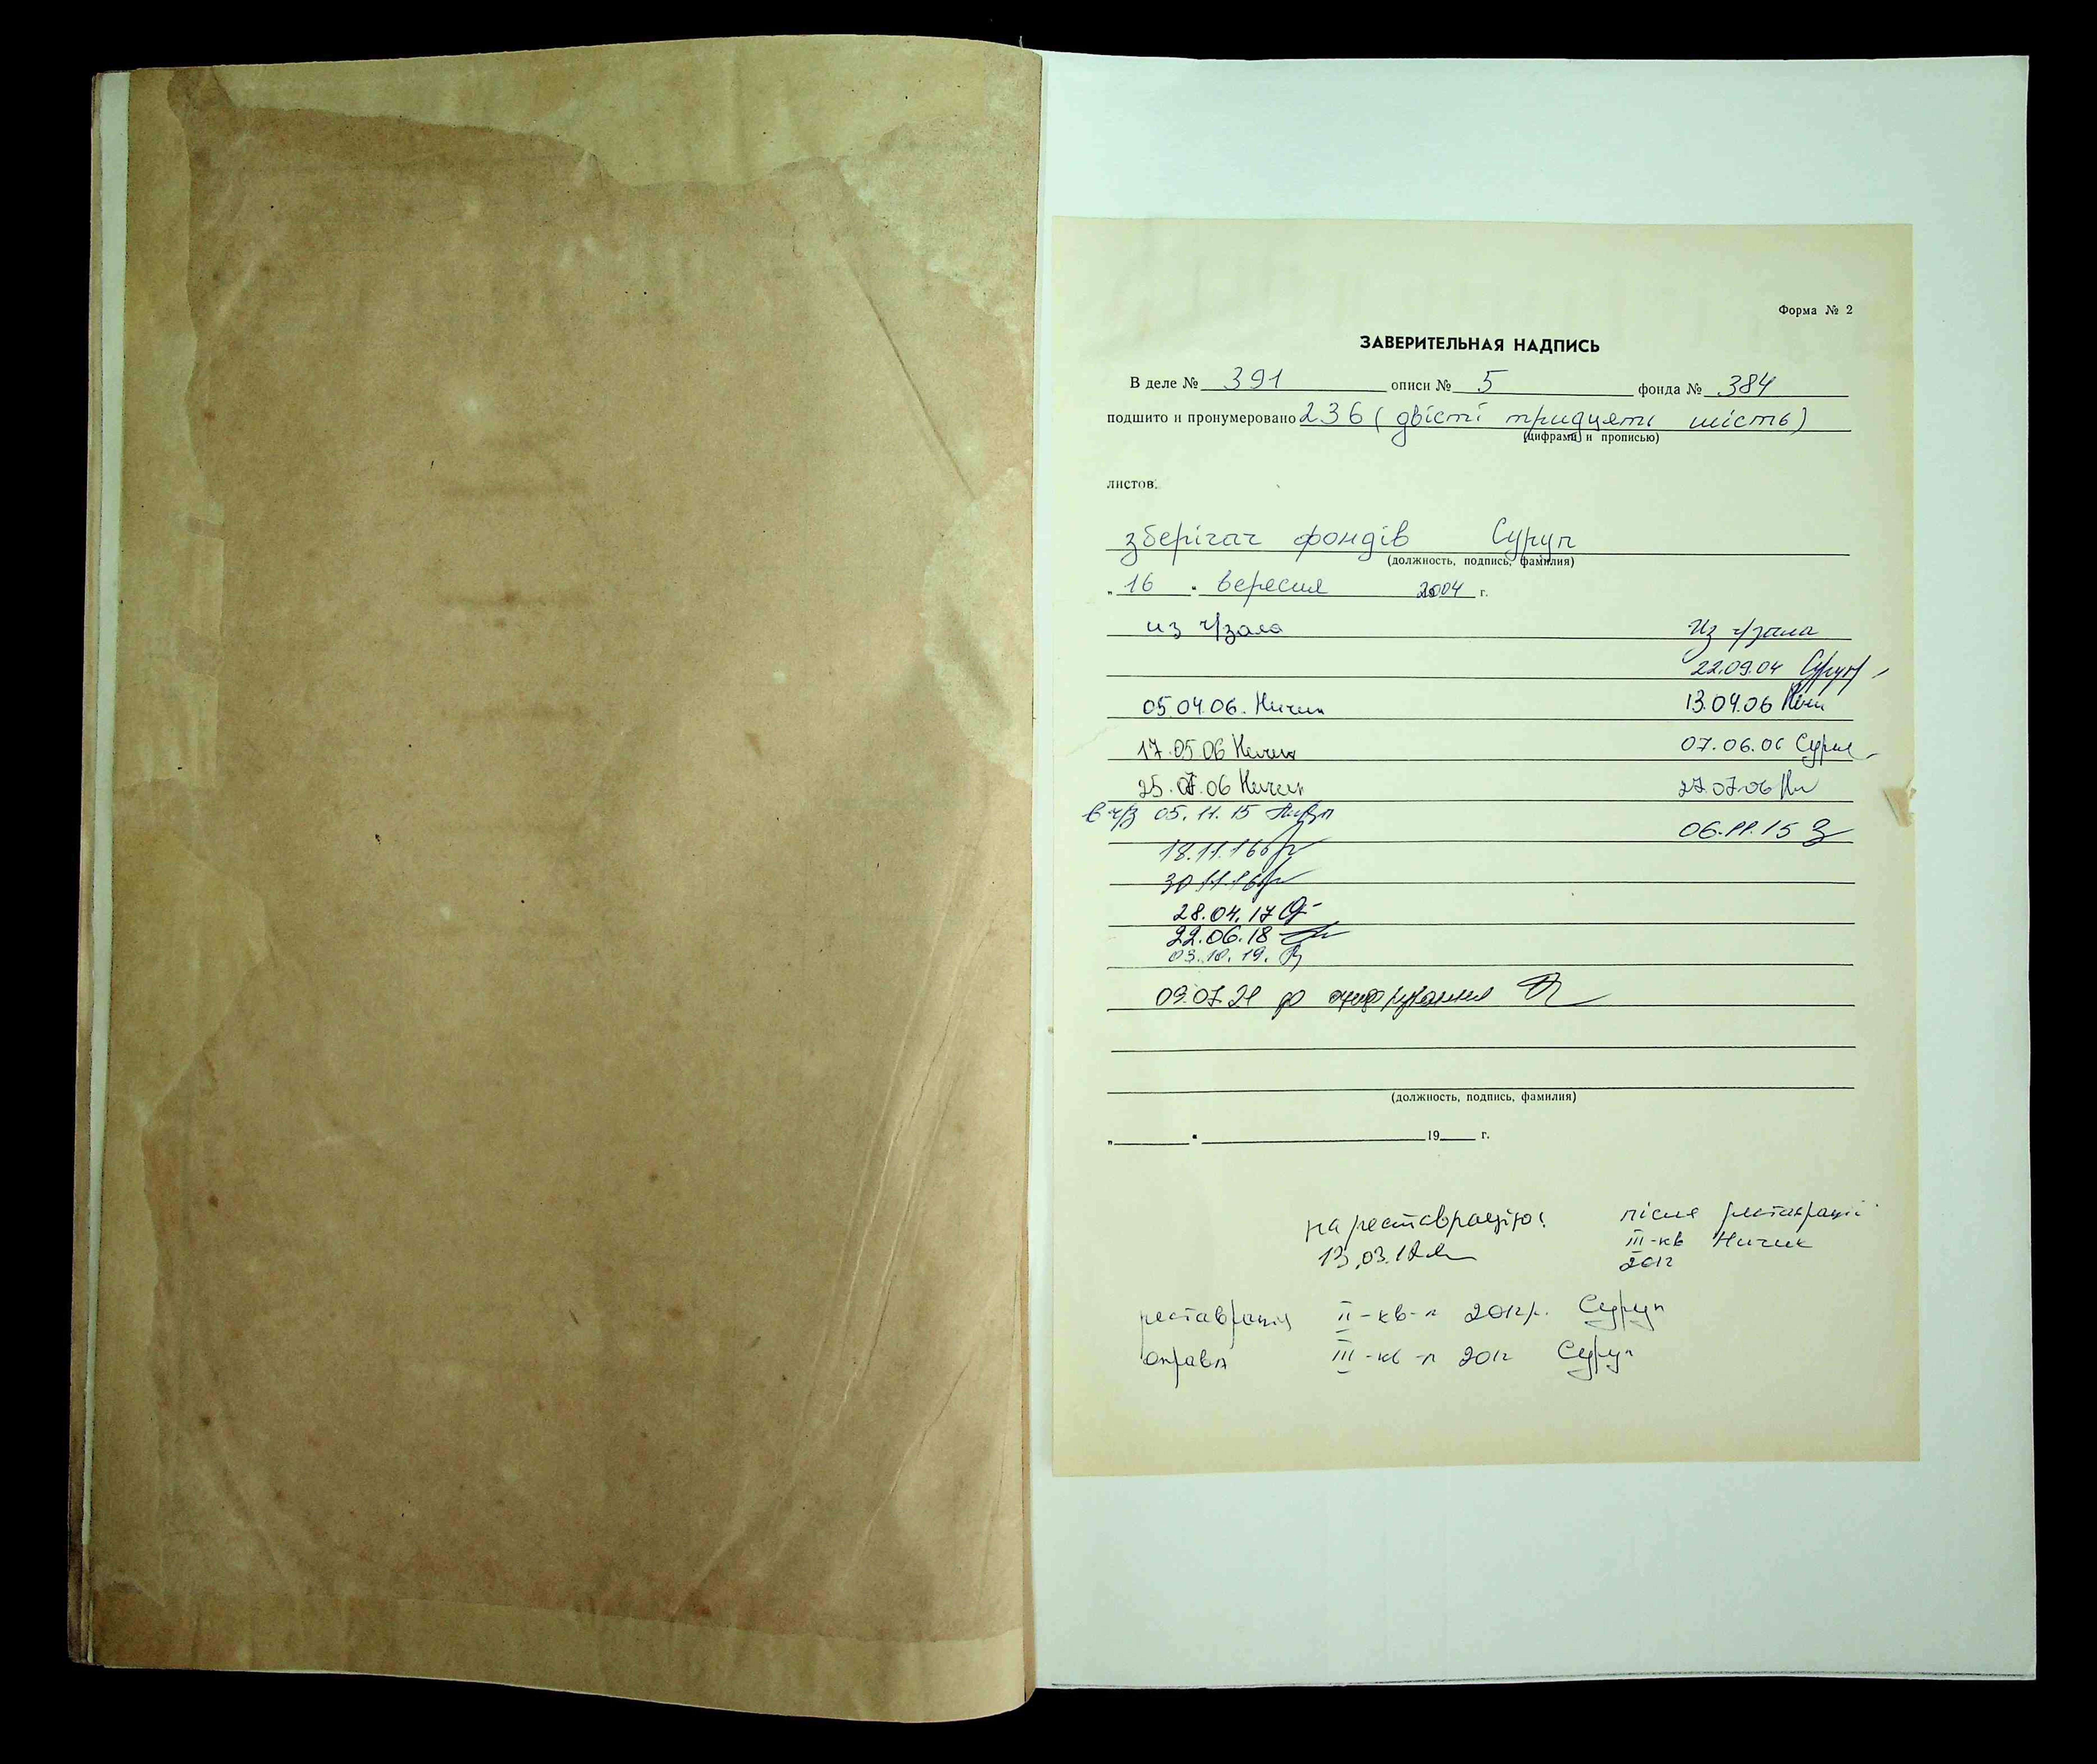 Форма № 2
ЗАВЕРИТЕЛЬНАЯ НАДПИСЬ
В деле № 391 описи № 5 фонда № 384
подшито и пронумеровано 236 (двісті тридцять шість)
(цифрами и прописью)
листов.
зберігач фондів Суруп
(должность, подпись, фамилия)
„ 16 " вересня 2004 г.
из ч/зала Из ч/зала
22.09.04 Суруп
05.04.06. Ничик 13.04.06 Ничи
17.05.06 Ничик 07.06.06
25.07.06 Ничик 27.07.06
в ч/з 05.11.15 06.11.15
18.11.16
30.11.16
28.04.17
22.06.18
03.10.19.
09.07.21 до оцифрування
(должность, подпись, фамилия)
„ " 19 г.
на реставрацію! після реставрації
13.03.12 III-кв Ничик
2012
реставрація II-кв-л 2012р. Суруп
оправа III-кв-л 2012 Суруп